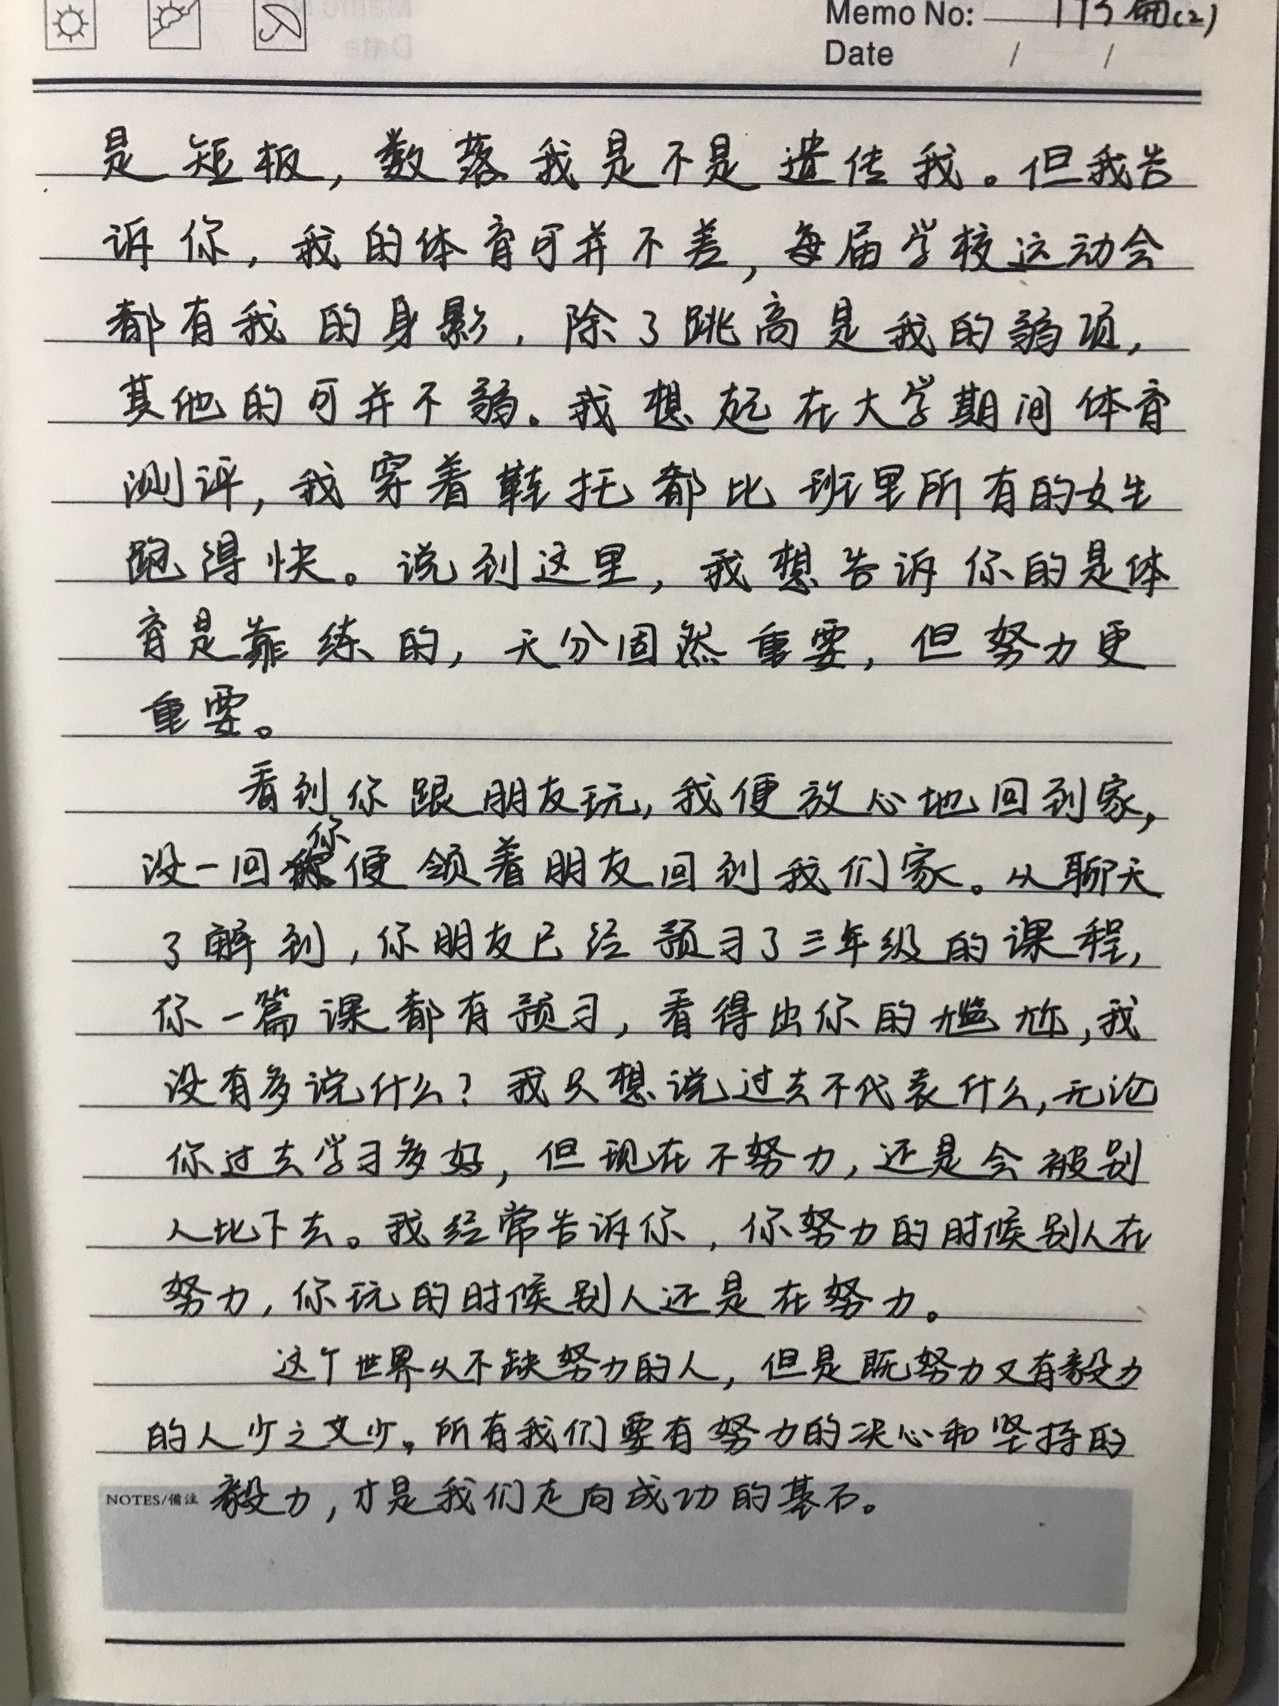 Memo No: 113篇(2)
Date / /
是短板，数落我是不是遗传我。但我告
诉你，我的体育可并不差，每届学校运动会
都有我的身影，除了跳高是我的弱项，
其他的可并不弱。我想起在大学期间体育
测评，我穿着鞋托都比班里所有的女生
跑得快。说到这里，我想告诉你的是体
育是靠练的，天分固然重要，但努力更
重要。
看到你跟朋友玩，我便放心地回到家，
没一回你便领着朋友回到我们家。从聊天
了解到，你朋友已经预习了三年级的课程，
你一篇课都有预习，看得出你的尴尬，我
没有多说什么？我只想说过去不代表什么，无论
你过去学习多好，但现在不努力，还是会被别
人比下去。我经常告诉你，你努力的时候别人在
努力，你玩的时候别人还是在努力。
这个世界从不缺努力的人，但是既努力又有毅力
的人少之又少。所有我们要有努力的决心和坚持的
NOTES/備注 毅力，才是我们走向成功的基石。